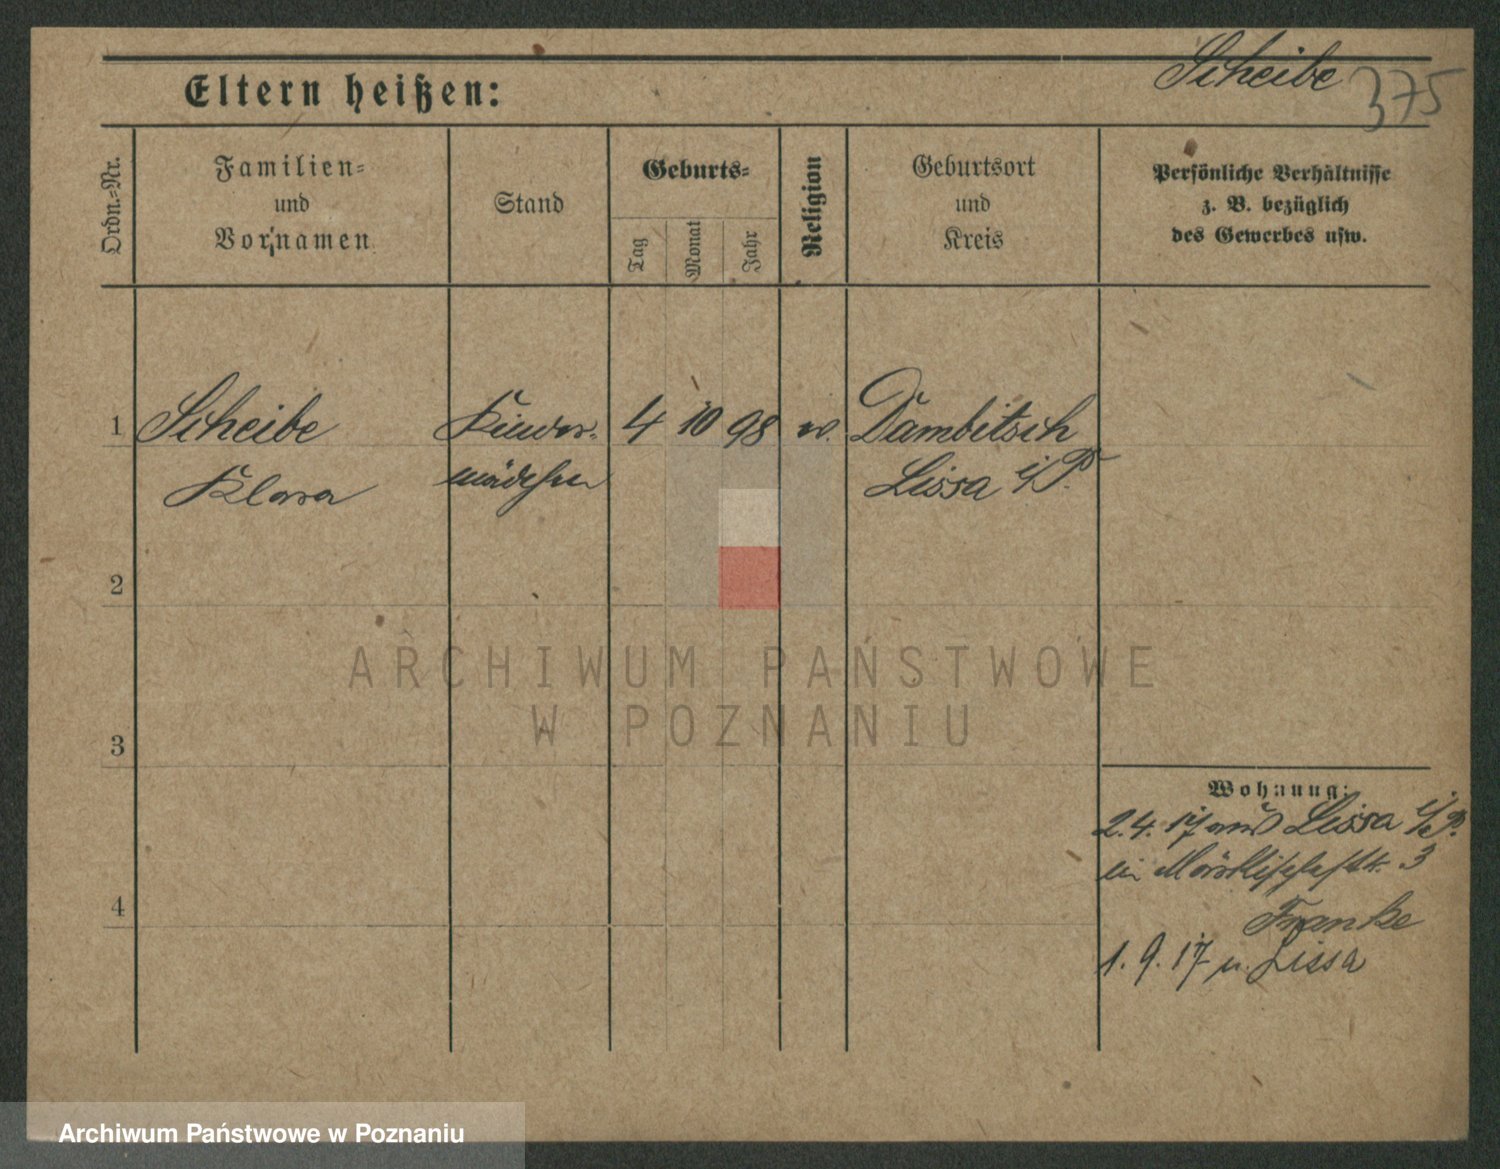 Scheibe 375
Eltern heißen:
Ordn.-Nr.
Familien-
und
Vornamen
Stand
Geburts-
Tag
Monat
Jahr
Religion
Geburtsort
und
Kreis
Persönliche Verhältnisse
z. B. bezüglich
des Gewerbes usw.
1 Scheibe Kinder- 4 10 98 ev. Dambitsch
Klara mädchen Lissa i/P.
2
3
4
Wohnung:
2.4.17 aus Lissa i/P.
in 3
Franke
1.9.17 n. Lissa
ARCHIWUM PAŃSTWOWE
W POZNANIU
Archiwum Państwowe w Poznaniu